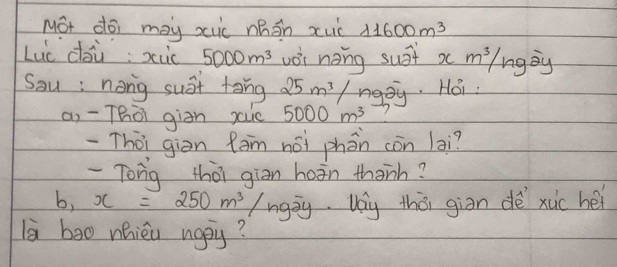 Một đội máy xúc nhận xúc 11600m³
Lúc đầu : xúc 5000m³ với năng suất x m³/ngày
Sau : năng suất tăng 25 m³/ngày. Hỏi :
a, - Thời gian xúc 5000 m³ ?
- Thời gian làm nốt phần còn lại?
- Tổng thời gian hoàn thành ?
b, x = 250 m³/ngày. Vậy thời gian để xúc hết
là bao nhiêu ngày ?